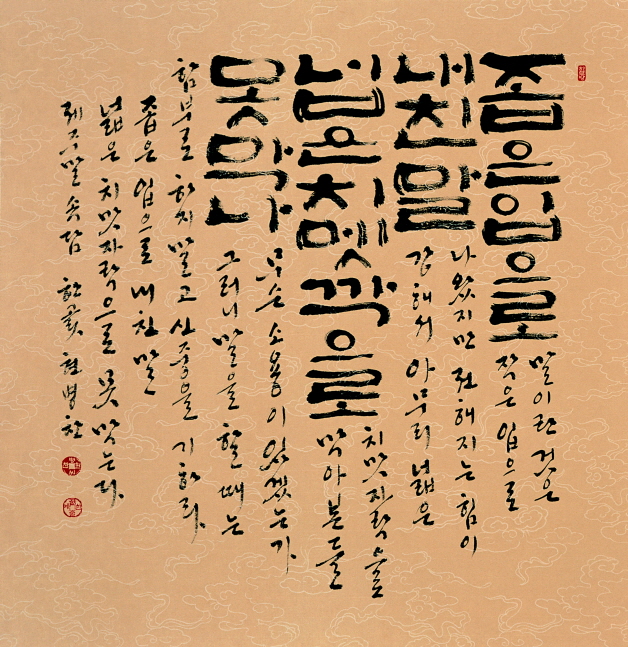 좁은입으로
내친말
넙은치멧깍으로
못막나
말이란 것은
작은 입으로
나왔지만 전해지는 힘이
강해서 아무리 넓은
치맛자락으로
막아 본들
무슨 소용이 있겠는가
그러니 말을 할 때는
함부로 하지 말고 신중을 기하라
좁은 입으로 내친 말
넓은 치맛자락으로 못 막는다
제주말 속담 한곬 현병찬